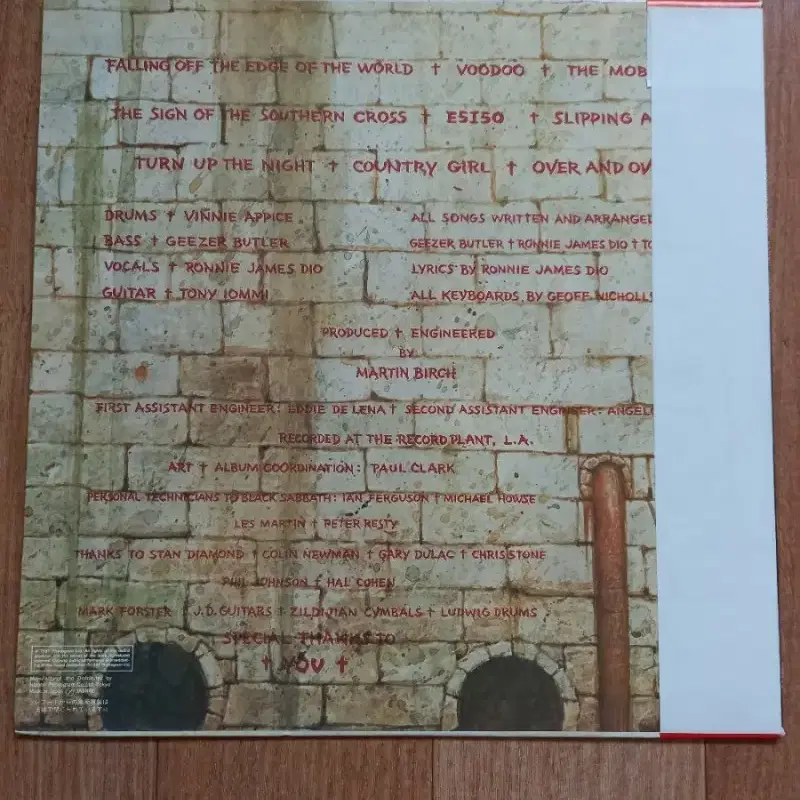 FALLING OFF THE EDGE OF THE WORLD † VOODOO † THE MOB
THE SIGN OF THE SOUTHERN CROSS † E5150 † SLIPPING A
TURN UP THE NIGHT † COUNTRY GIRL † OVER AND OV
DRUMS † VINNIE APPICE
BASS † GEEZER BUTLER
VOCALS † RONNIE JAMES DIO
GUITAR † TONY IOMMI
ALL SONGS WRITTEN AND ARRANGED
GEEZER BUTLER † RONNIE JAMES DIO † TO
LYRICS BY RONNIE JAMES DIO
ALL KEYBOARDS BY GEOFF NICHOLLS
PRODUCED † ENGINEERED
BY
MARTIN BIRCH
FIRST ASSISTANT ENGINEER: EDDIE DE LENA † SECOND ASSISTANT ENGINEER: ANGEL
RECORDED AT THE RECORD PLANT, L.A.
ART † ALBUM COORDINATION: PAUL CLARK
PERSONAL TECHNICIANS TO BLACK SABBATH: IAN FERGUSON † MICHAEL HOWSE
LES MARTIN † PETER RESTY
THANKS TO STAN DIAMOND † COLIN NEWMAN † GARY DULAC † CHRIS STONE
PHIL JOHNSON † HAL COHEN
MARK FORSTER † J.D. GUITARS † ZILDJIAN CYMBALS † LUDWIG DRUMS
SPECIAL THANKS TO
† YOU †
Manufactured and Distributed by